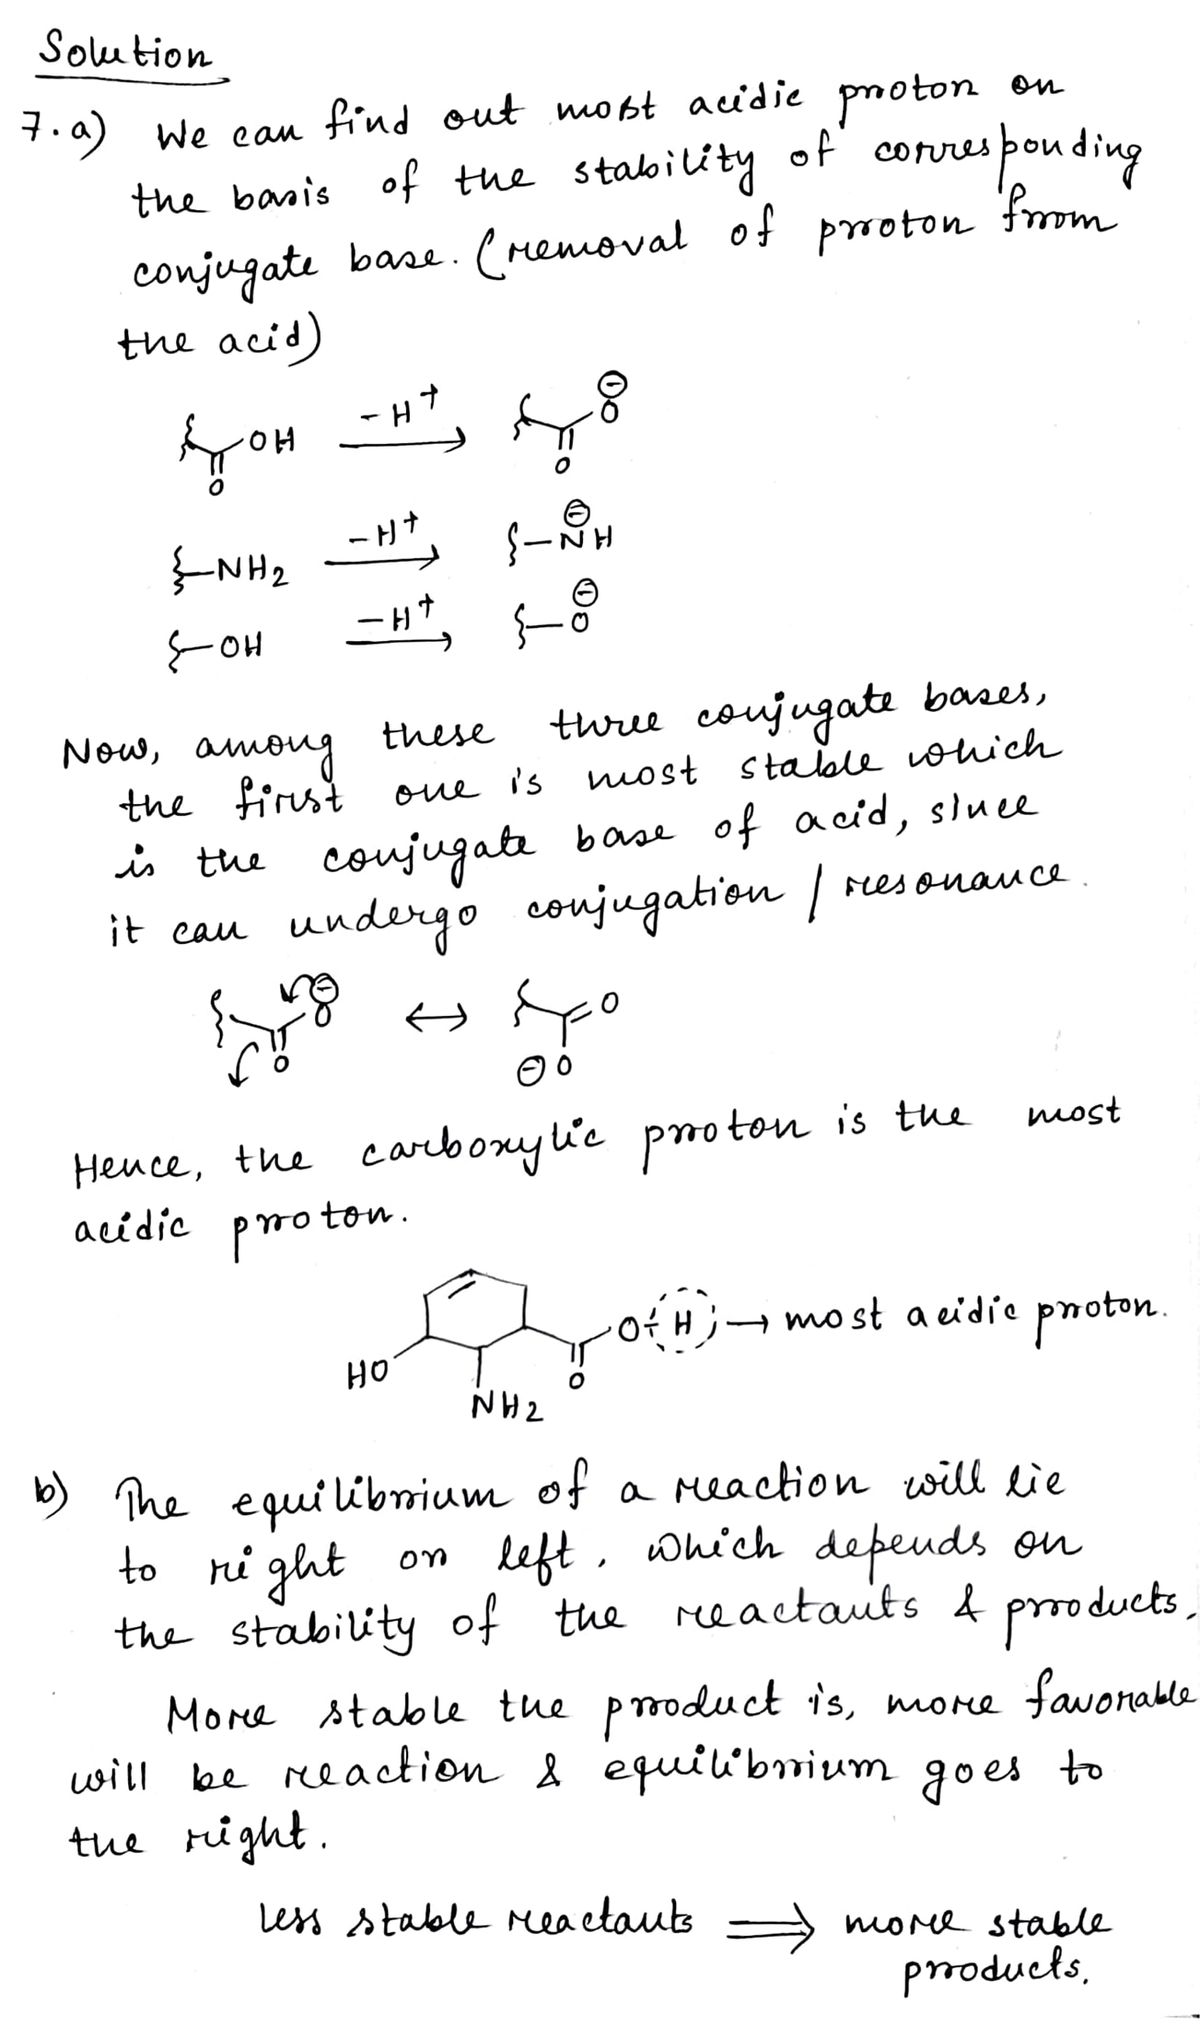 Solution
7.a) We can find out most acidic proton on
the basis of the stability of corresponding
conjugate base. (removal of proton from
the acid)
OH -H+ ⊖ O
O O
-NH2 -H+ -⊖NH
-OH -H+ -O⊖
Now, among these three conjugate bases,
the first one is most stable which
is the conjugate base of acid, since
it can undergo conjugation / resonance.
⊖ O ↔ O
O ⊖O
Hence, the carboxylic proton is the most
acidic proton.
O H → most acidic proton.
HO O
NH2
b) The equilibrium of a reaction will lie
to right or left, which depends on
the stability of the reactants & products.
More stable the product is, more favorable
will be reaction & equilibrium goes to
the right.
Less stable reactants ⟹ more stable
products.